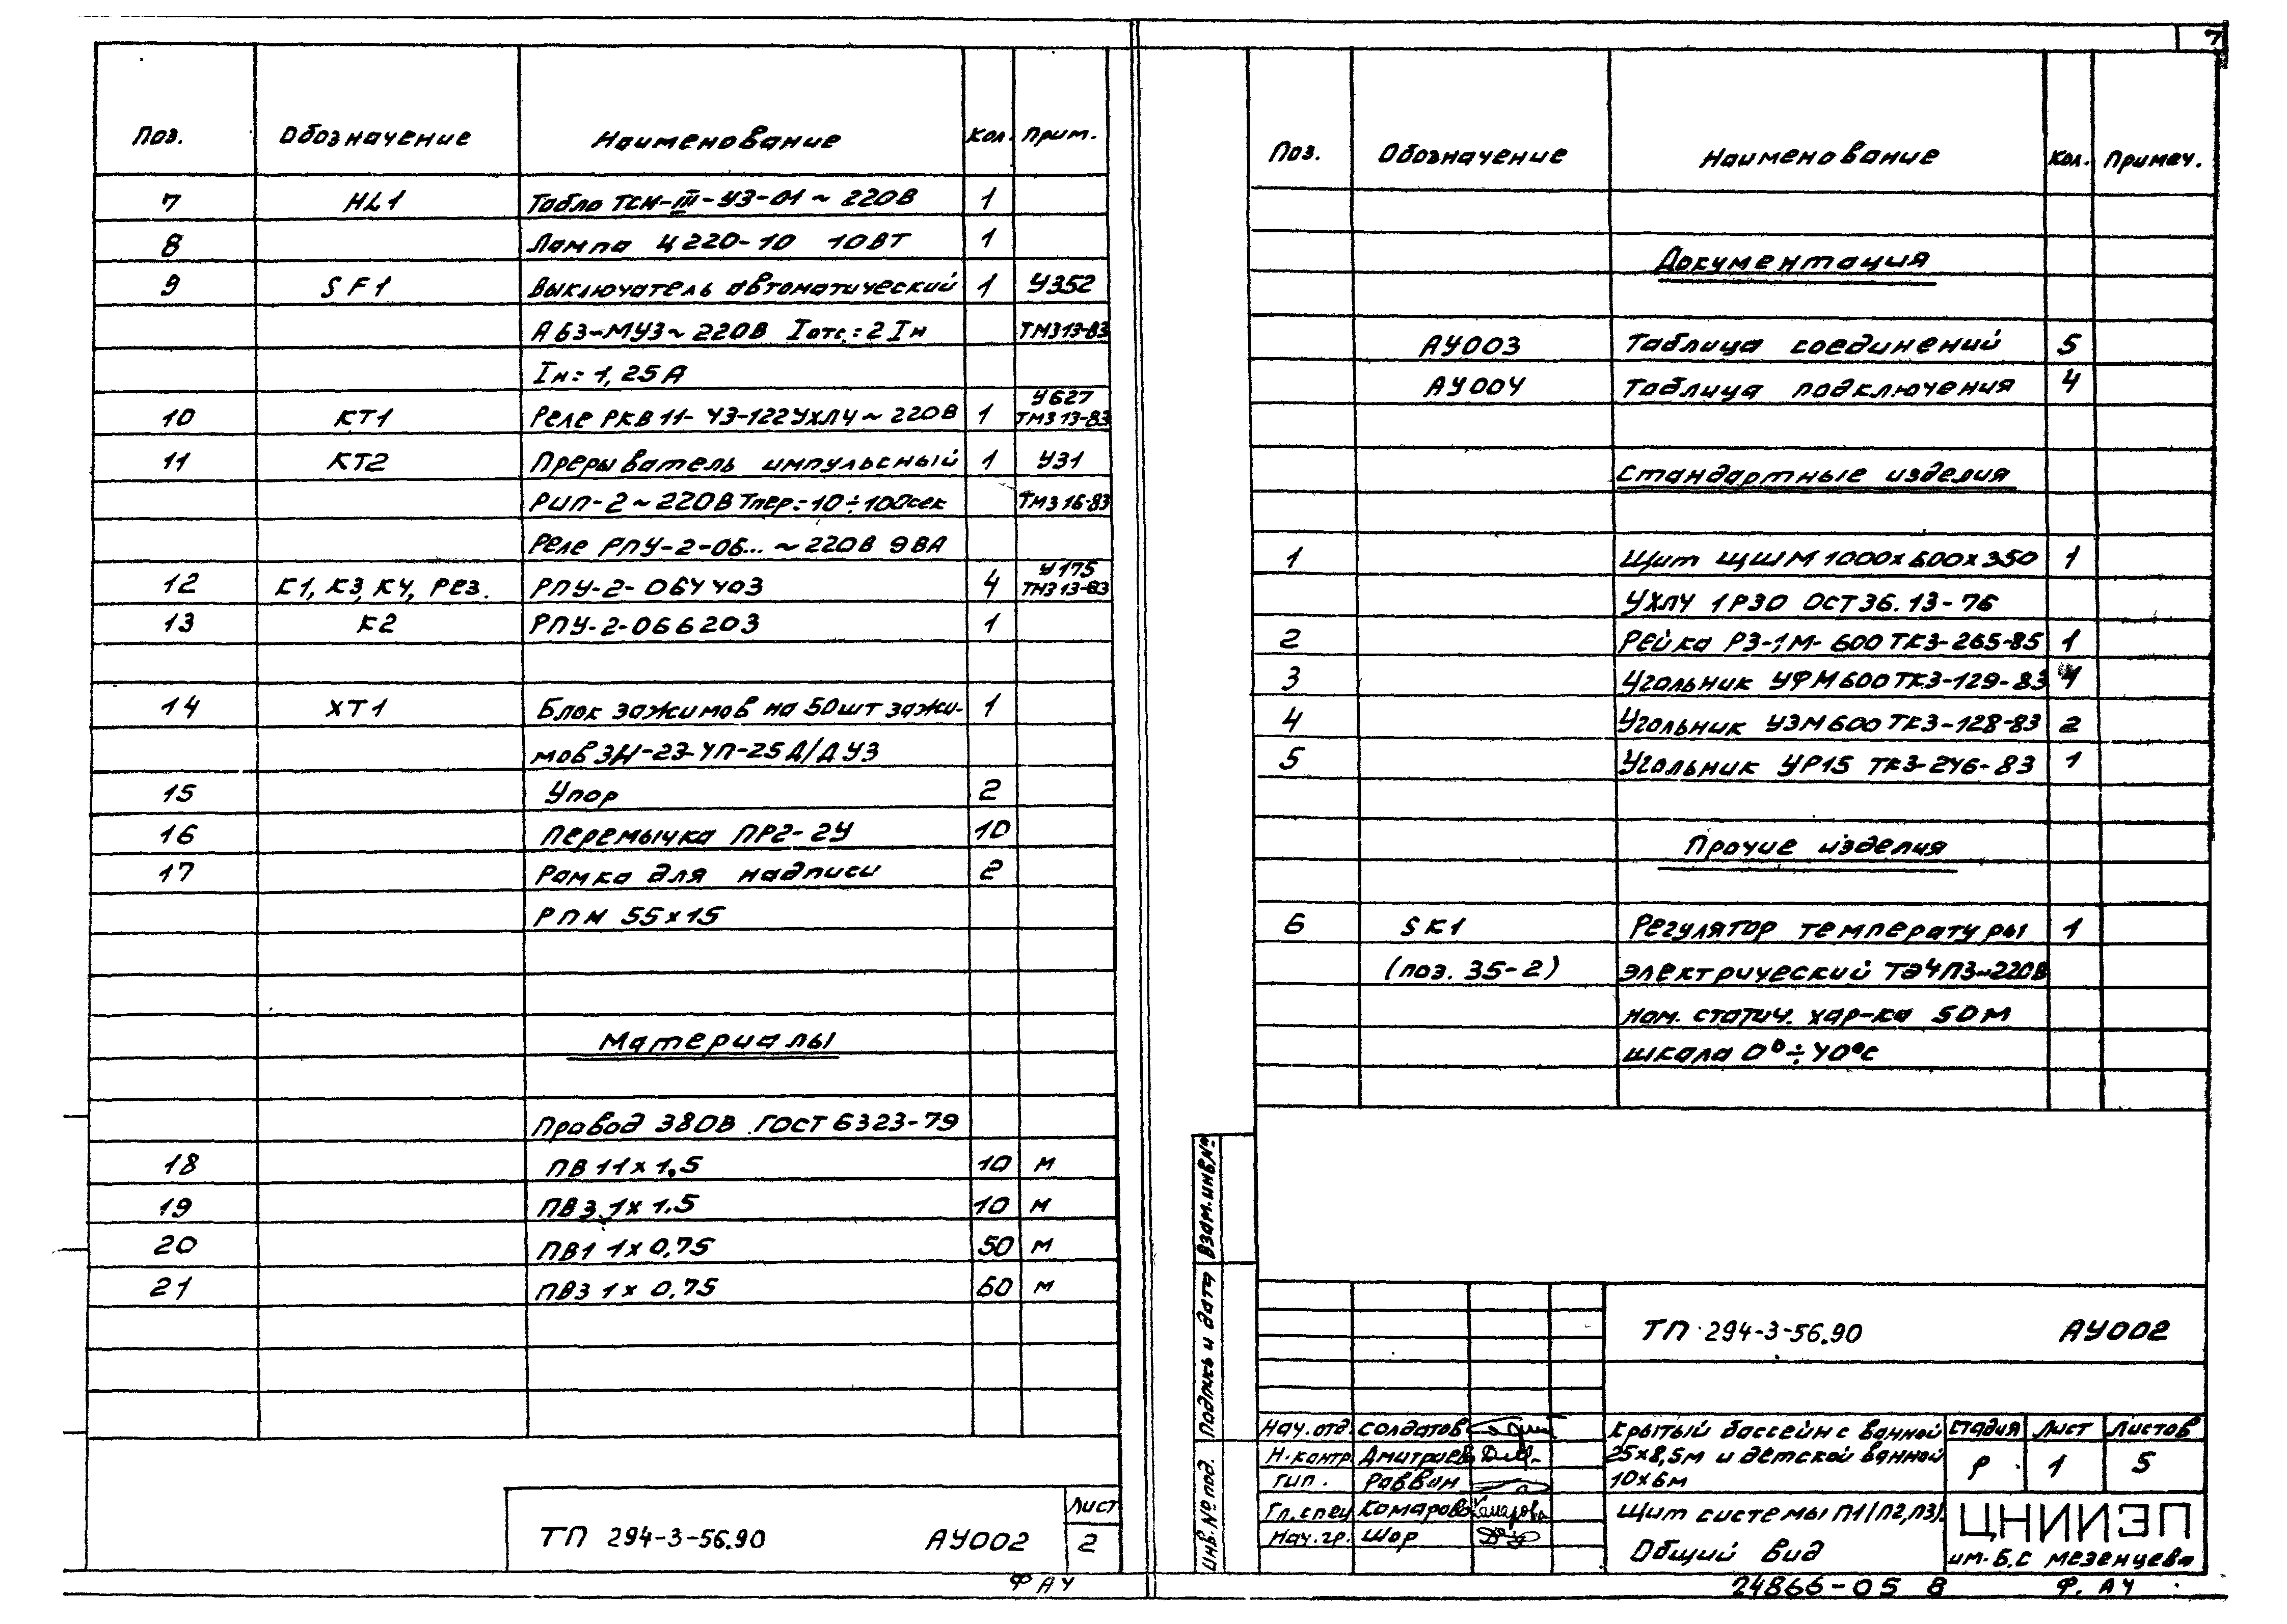 7
Поз. Обозначение Наименование Кол. Прим.
7 HL1 Табло ТСМ-III-У3-01 ~ 220В 1
8 Лампа Ц 220-10 10ВТ 1
9 SF1 Выключатель автоматический 1 У352
А63-МУ3 ~ 220В Iотс.=2Iн ТМ313-83
Iн=1,25А
У627
10 КТ1 Реле РКВ 11-43-122УХЛ4 ~ 220В 1 ТМ313-83
11 КТ2 Прерыватель импульсный 1 У31
РИП-2 ~ 220В Тпер=10÷100сек ТМ316-83
Реле РПУ-2-06... ~ 220В 9ВА
У175
12 К1, К3, К4, Рез. РПУ-2-064403 4 ТМ313-83
13 К2 РПУ-2-066203 1
14 ХТ1 Блок зажимов на 50шт зажи- 1
мов ЗН-23-4П-25Д/Д У3
15 Упор 2
16 Перемычка ПР2-2У 10
17 Рамка для надписи 2
РПМ 55х15
Материалы
Провод 380В ГОСТ 6323-79
18 ПВ 1 1х1,5 10 м
19 ПВ3 1х1,5 10 м
20 ПВ1 1х0,75 50 м
21 ПВ3 1х0,75 60 м
ТП 294-3-56.90 АУ002 Лист
2
Ф АУ
Поз. Обозначение Наименование Кол. Примеч.
Документация
АУ003 Таблица соединений 5
АУ004 Таблица подключения 4
Стандартные изделия
1 Щит ЩШМ 1000х600х350 1
УХЛ4 1Р30 ОСТ 36.13-76
2 Рейка РЗ-1М-600 ТК3-265-85 1
3 Угольник УФМ600 ТК3-129-83 1
4 Угольник УЗМ600 ТК3-128-83 2
5 Угольник УР15 ТК3-246-83 1
Прочие изделия
6 SK1 Регулятор температуры 1
(поз. 35-2) электрический ТЭ4П3 ~ 220В
ном. статич. хар-ка 50М
шкала 0°÷40°С
Взам.инв.№
Подпись и дата
Инв.№ под.
ТП 294-3-56.90 АУ002
Нач.отд. Солдатов
Н.контр. Дмитриев
ГИП. Раввин
Гл.спец Комарова
Нач.гр. Шор
Крытый бассейн с ванной
25х8,5м и детской ванной
10х6м
Стадия Лист Листов
Р 1 5
Щит системы П1(П2,П3).
Общий вид
ЦНИИЭП
им. Б.С Мезенцева
24866-05 8 Ф. АУ